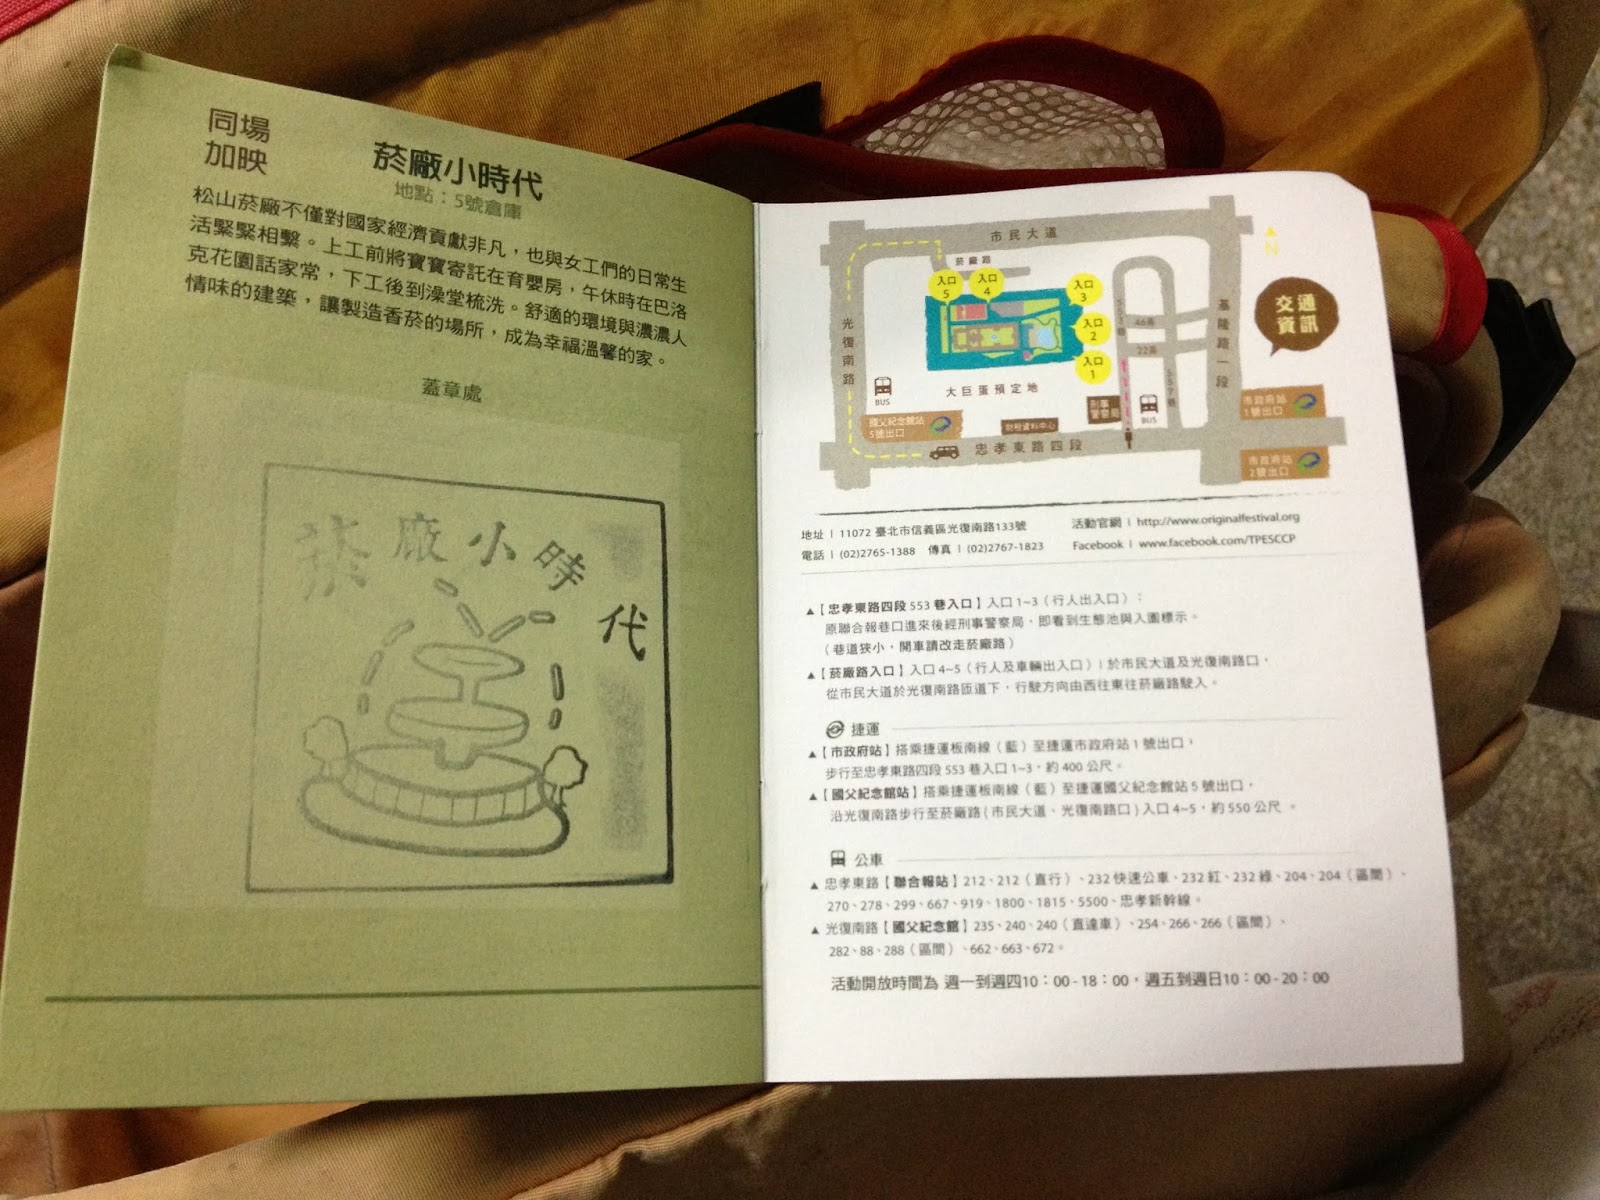 同場
加映
菸廠小時代
地點：5號倉庫
松山菸廠不僅對國家經濟貢獻非凡，也與女工們的日常生
活緊緊相繫。上工前將寶寶寄託在育嬰房，午休時在巴洛
克花園話家常，下工後到澡堂梳洗。舒適的環境與濃濃人
情味的建築，讓製造香菸的場所，成為幸福溫馨的家。
蓋章處
菸廠小時代
市民大道
菸廠路
入口
5
入口
4
入口
3
入口
2
入口
1
N
交通
資訊
光復南路
基隆路一段
553巷
46弄
22弄
559巷
BUS
大巨蛋預定地
刑事
警察局
BUS
國父紀念館站
5號出口
財稅資料中心
忠孝東路四段
市政府站
1號出口
市政府站
2號出口
地址 | 11072 臺北市信義區光復南路133號
電話 | (02)2765-1388 傳真 | (02)2767-1823
活動官網 | http://www.originalfestival.org
Facebook | www.facebook.com/TPESCCP
▲【忠孝東路四段 553 巷入口】入口 1~3（行人出入口）：
原聯合報巷口進來後經刑事警察局，即看到生態池與入園標示。
（巷道狹小，開車請改走菸廠路）
▲【菸廠路入口】入口 4~5（行人及車輛出入口）| 於市民大道及光復南路口，
從市民大道於光復南路匝道下，行駛方向由西往東往菸廠路駛入。
捷運
▲【市政府站】搭乘捷運板南線（藍）至捷運市政府站 1 號出口，
步行至忠孝東路四段 553 巷入口 1~3，約 400 公尺。
▲【國父紀念館站】搭乘捷運板南線（藍）至捷運國父紀念館站 5 號出口，
沿光復南路步行至菸廠路 ( 市民大道、光復南路口 ) 入口 4~5，約 550 公尺 。
公車
▲ 忠孝東路【聯合報站】212、212（直行）、232 快速公車、232 紅、232 綠、204、204（區間）、
270、278、299、667、919、1800、1815、5500、忠孝新幹線。
▲ 光復南路【國父紀念館】235、240、240（直達車）、254、266、266（區間）、
282、88、288（區間）、662、663、672。
活動開放時間為 週一到週四10：00 - 18：00，週五到週日10：00 - 20：00